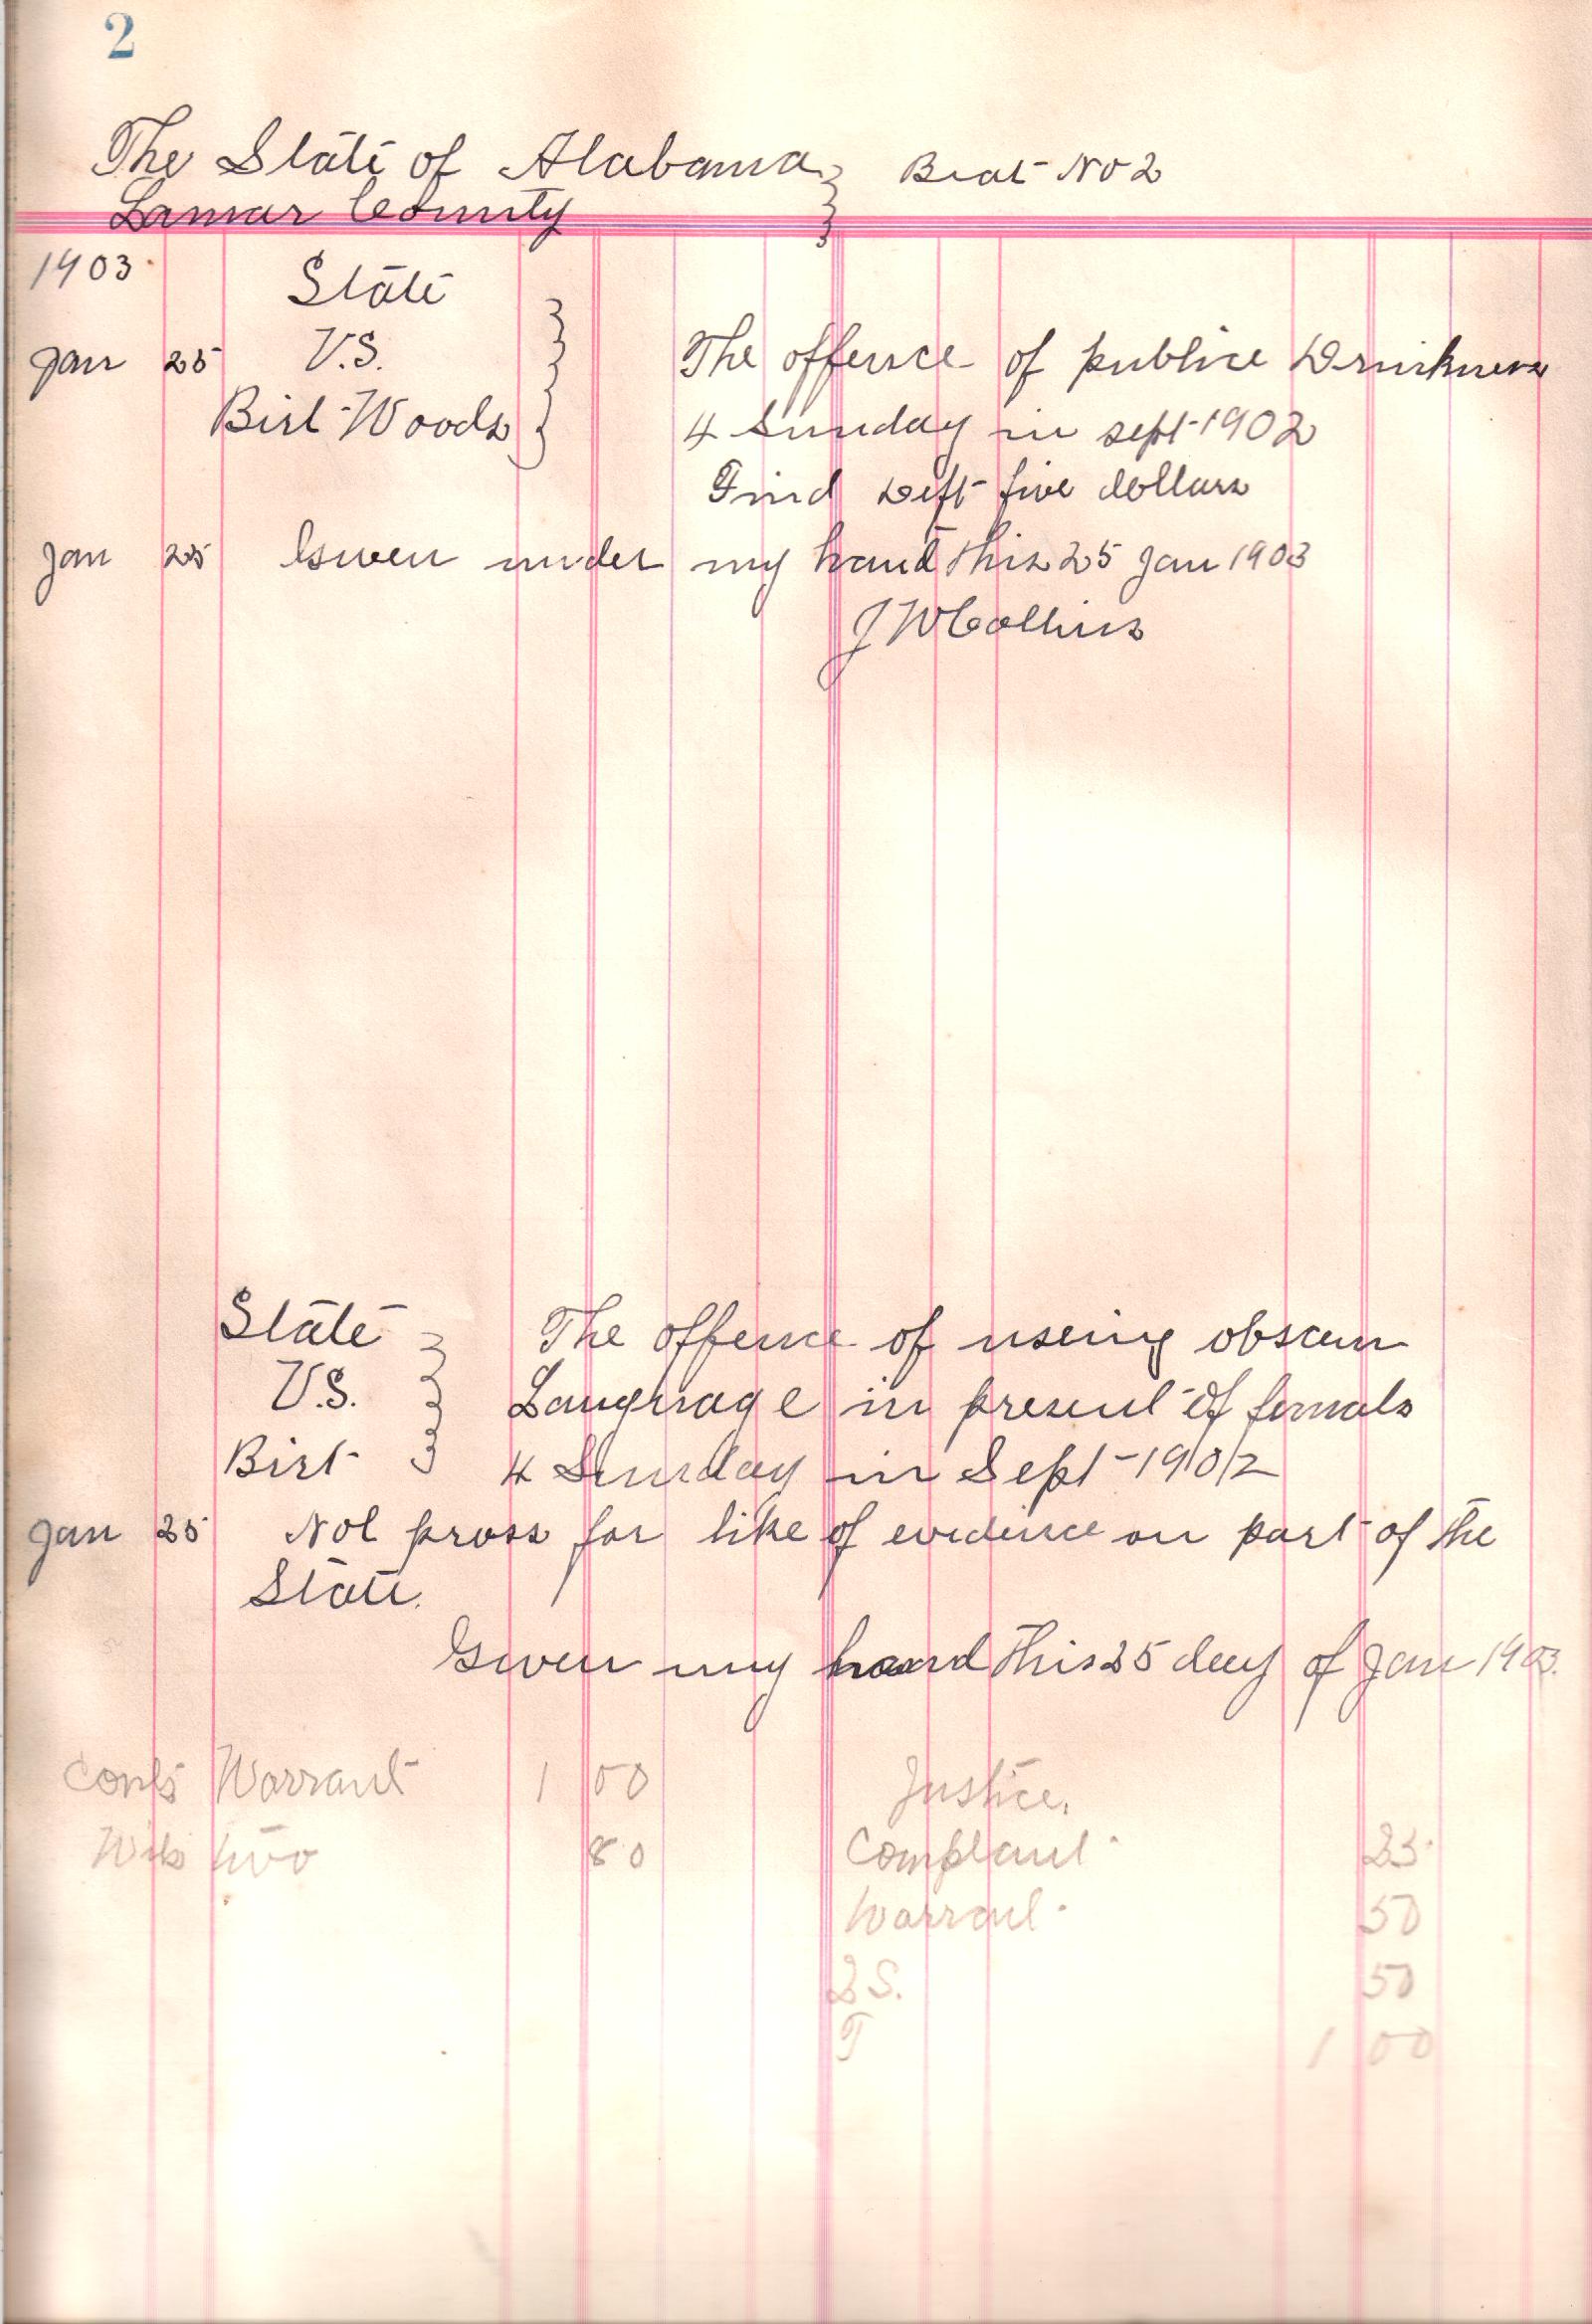 2
The State of Alabama } Beat No 2
Lamar County
1903
State
Jan 25 V.S. } The offence of publice Drinkness
Birt Woods 4 Sunday in sept 1902
Find Deft five dollars
Jan 25 Given under my hand this 25 Jan 1903
J W Collins
State } The offence of useing obscen
V.S. Languag e in present of femals
Birt 4 Sunday in Sept 1902
Jan 25 Nol pross for like of evidence on part of the
State.
Given my hand this 25 day of Jan 1903.
Warrant 1 00 Justice.
Wits two 80 Complant 25
Warrant 50
2 S. 50
T 1 00